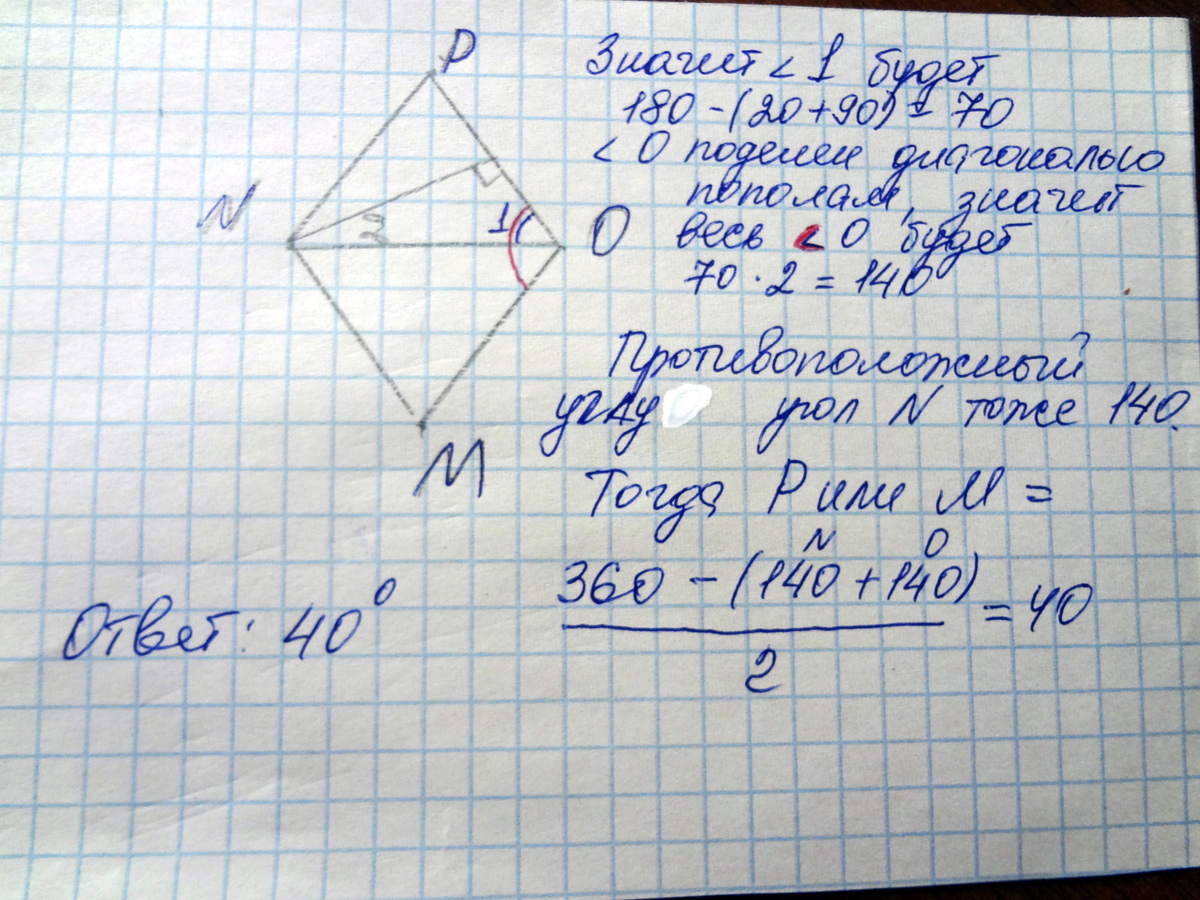 P
N
2
1
O
M
Значит < 1 будет
180 - (20 + 90) = 70
< O поделен диагональю
пополам, значит
весь < O будет
70 · 2 = 140
Противоположный
углу угол N тоже 140.
Тогда P или M =
N O
360 - (140 + 140)
= 40
2
Ответ: 40°